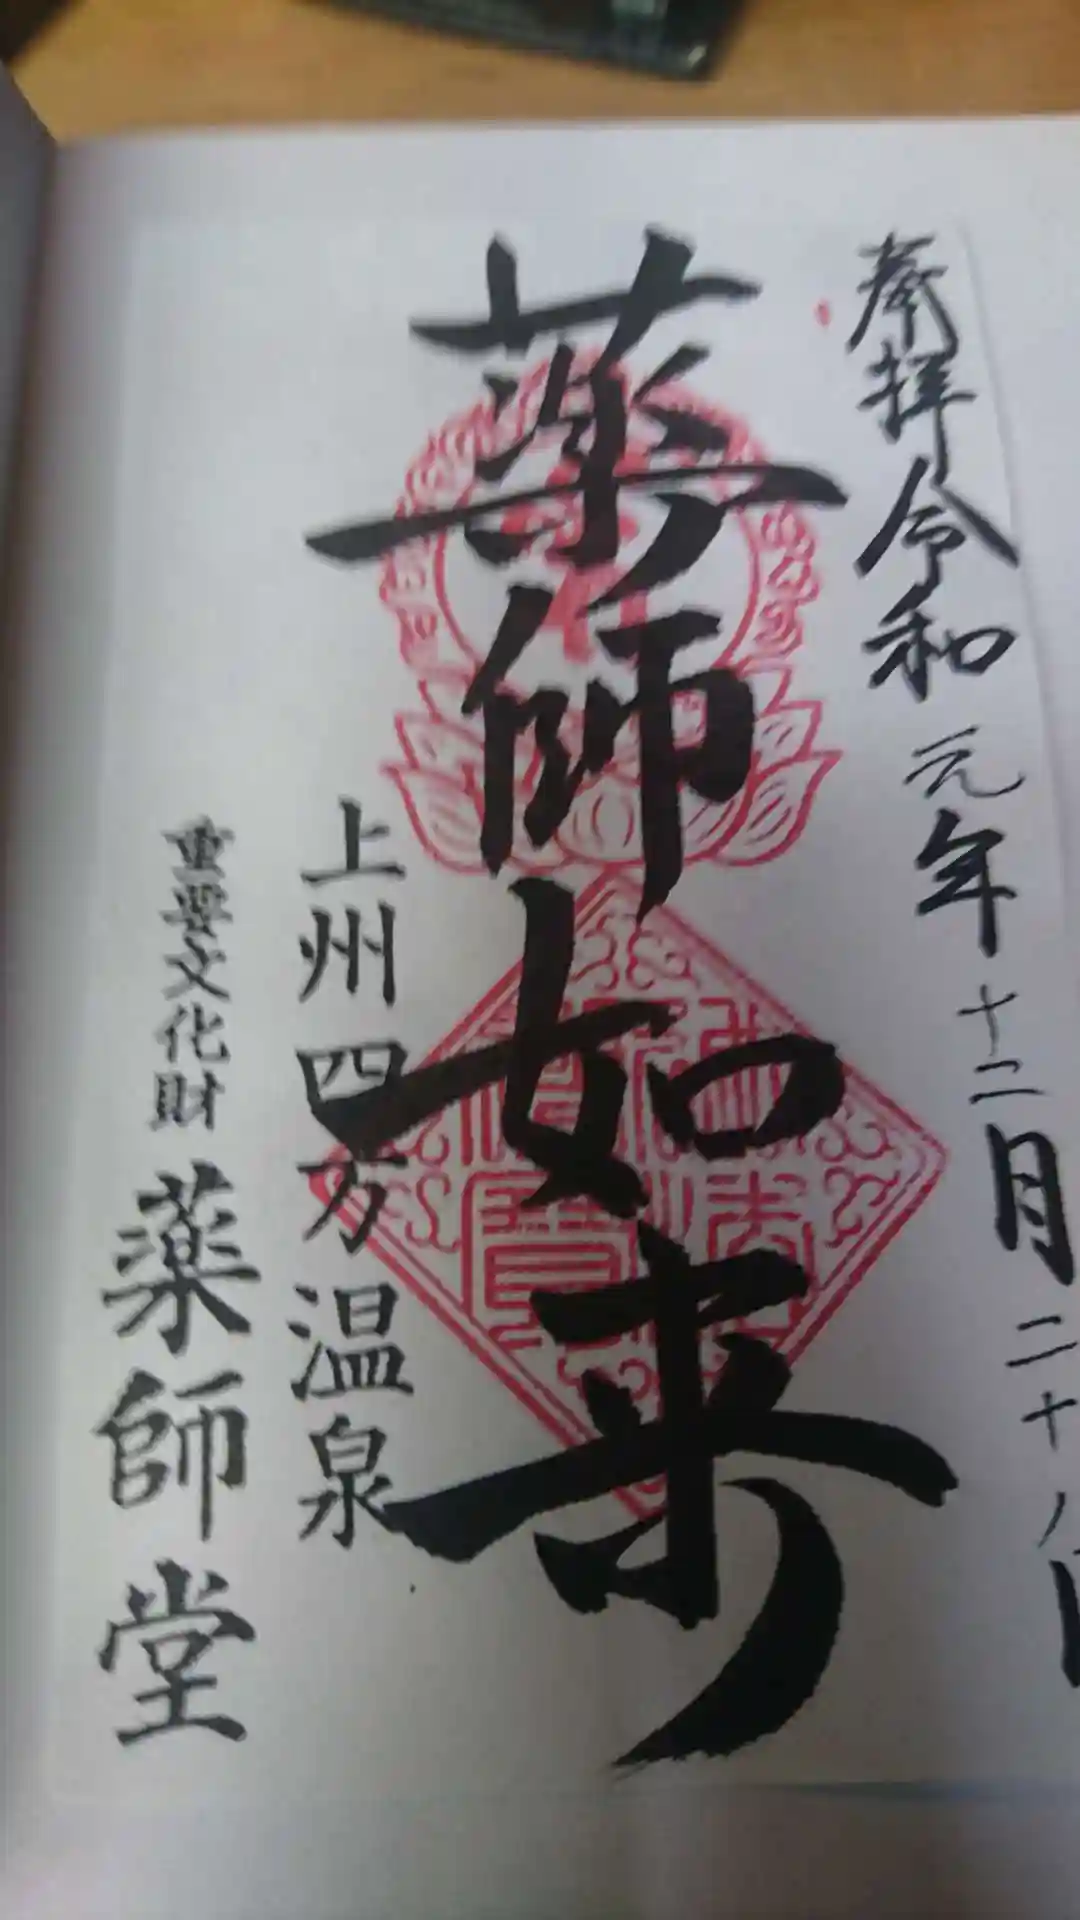 奉拝 令和元年十二月二十八日
薬師如来
上州四万温泉
重要文化財 薬師堂